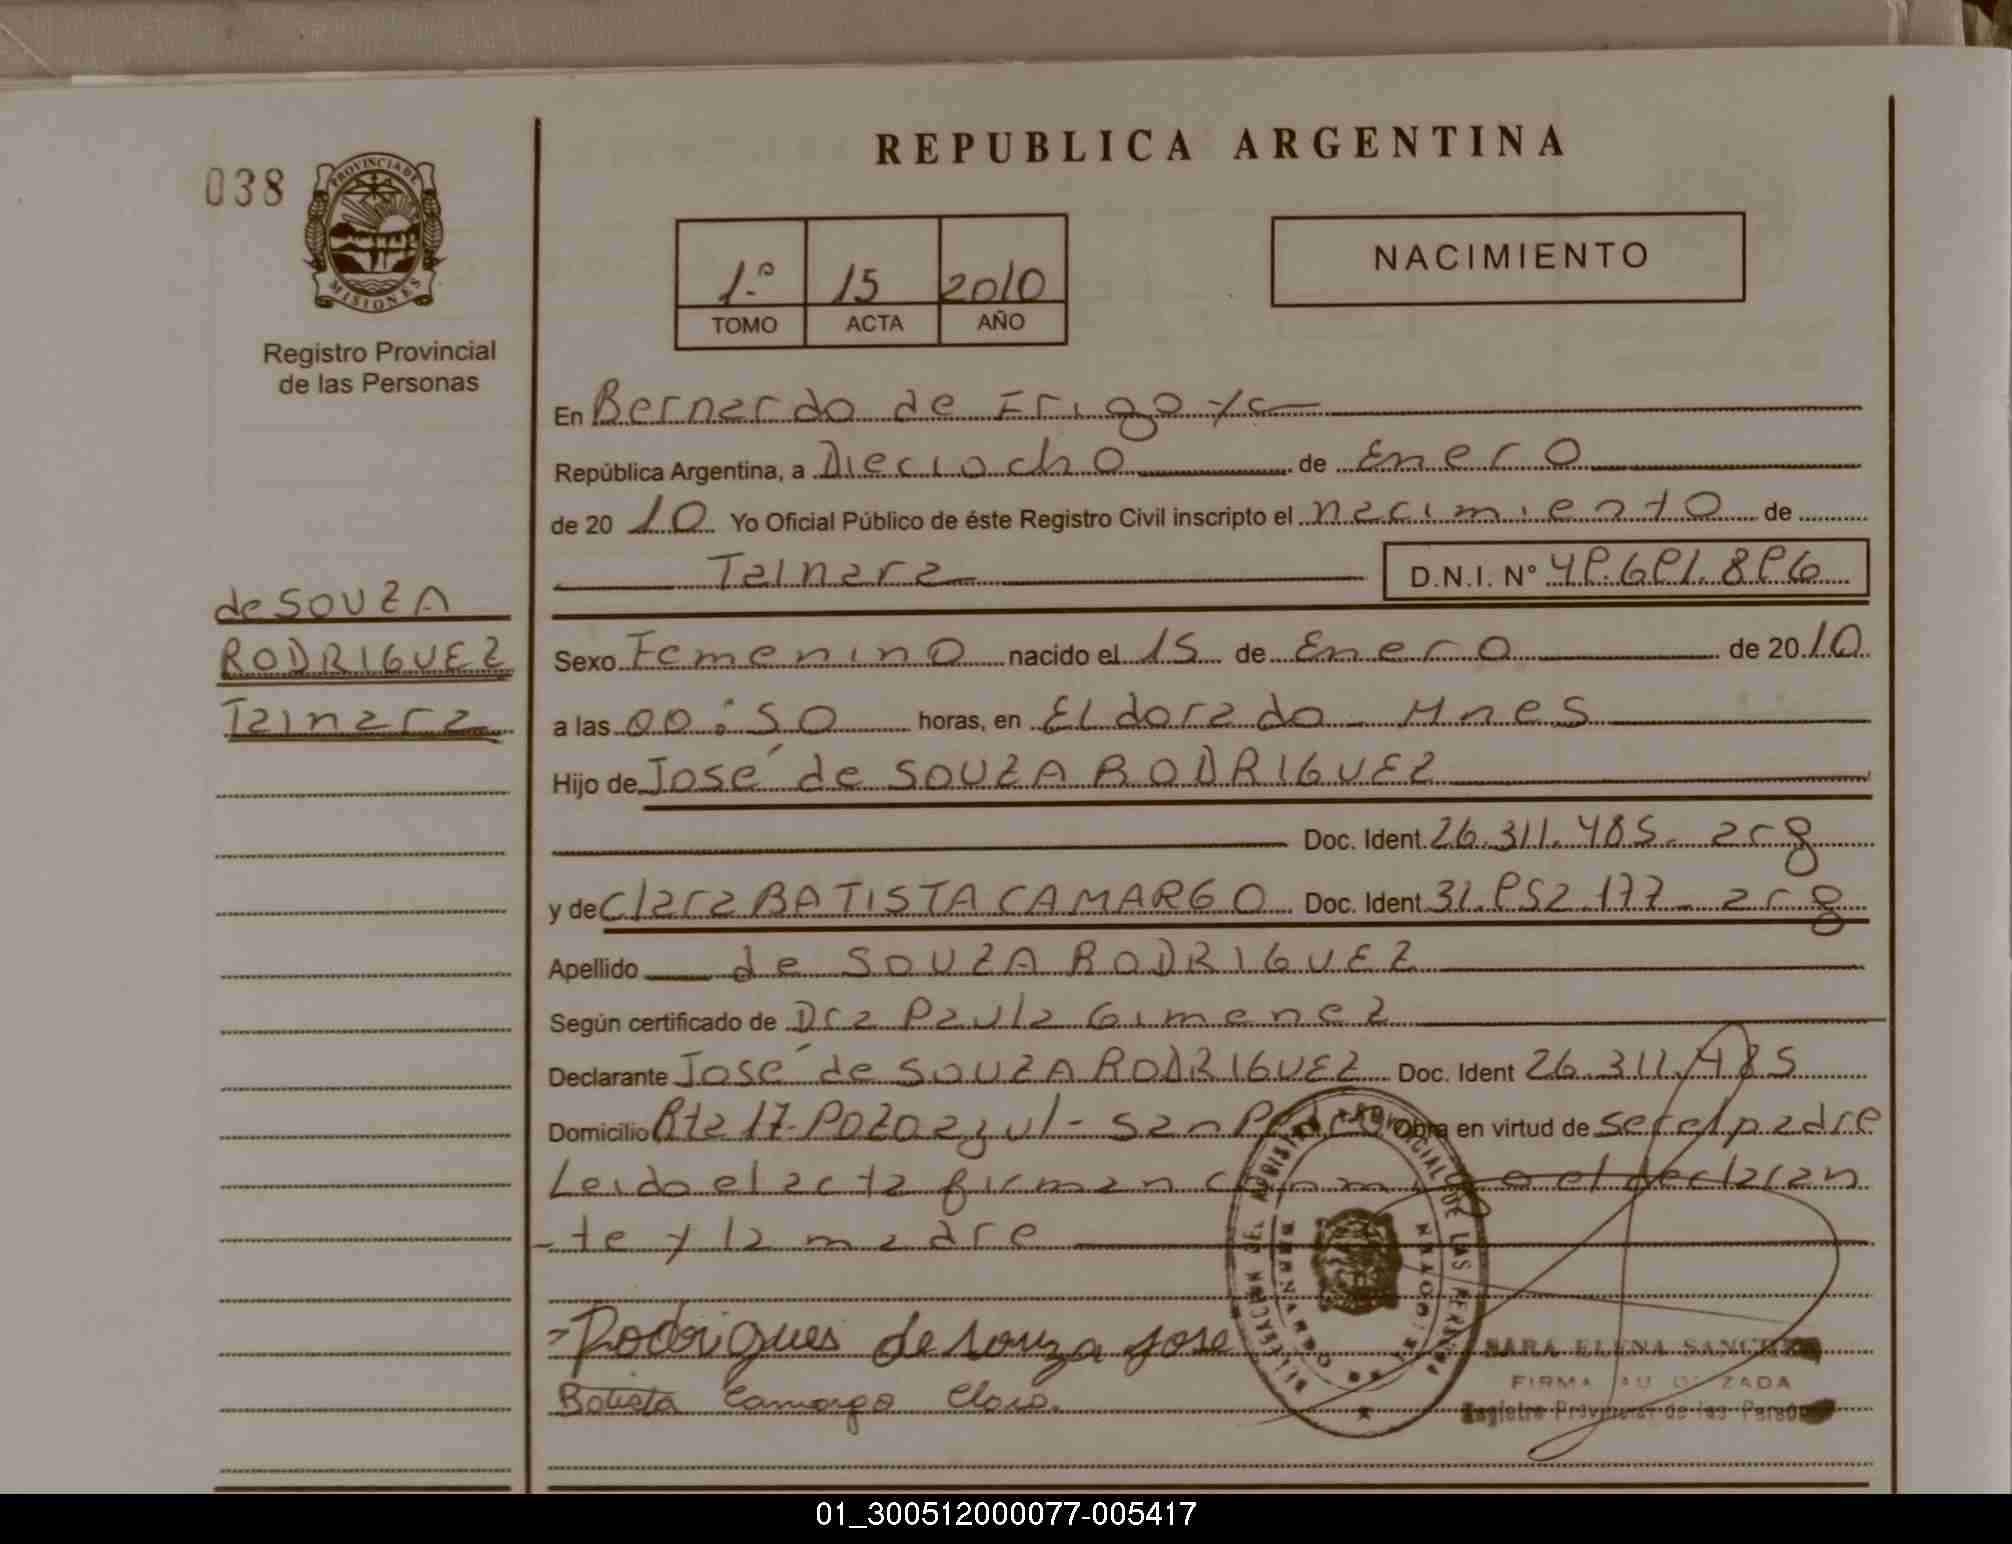 REPUBLICA ARGENTINA
038
PROVINCIA DE
MISIONES
Registro Provincial
de las Personas
1.º 15 2010
TOMO ACTA AÑO
NACIMIENTO
En Bernardo de Irigoyen
República Argentina, a Dieciocho de Enero
de 2010 Yo Oficial Público de éste Registro Civil inscripto el nacimiento de
Tainara D.N.I. Nº 49.691.896
de SOUZA
RODRIGUEZ
Tainara
Sexo Femenino nacido el 15 de Enero de 2010
a las 00:50 horas, en Eldorado - Mnes
Hijo de José de SOUZA RODRIGUEZ
Doc. Ident. 26.311.485- arg
y de Clara BATISTA CAMARGO Doc. Ident. 31.952.177- arg
Apellido de SOUZA RODRIGUEZ
Según certificado de Dra Paula Gimenez
Declarante José de SOUZA RODRIGUEZ Doc. Ident 26.311.485
Domicilio Rta 17-Pozo azul - San Pedro Obra en virtud de ser el padre
Leido el acta firman conmigo el declaran
-te y la madre
Rodrigues de souza jose
Batista Camargo Clara.
SARA ELENA SANCHEZ
FIRMA AUTORIZADA
Registro Provincial de las Personas
01_300512000077-005417